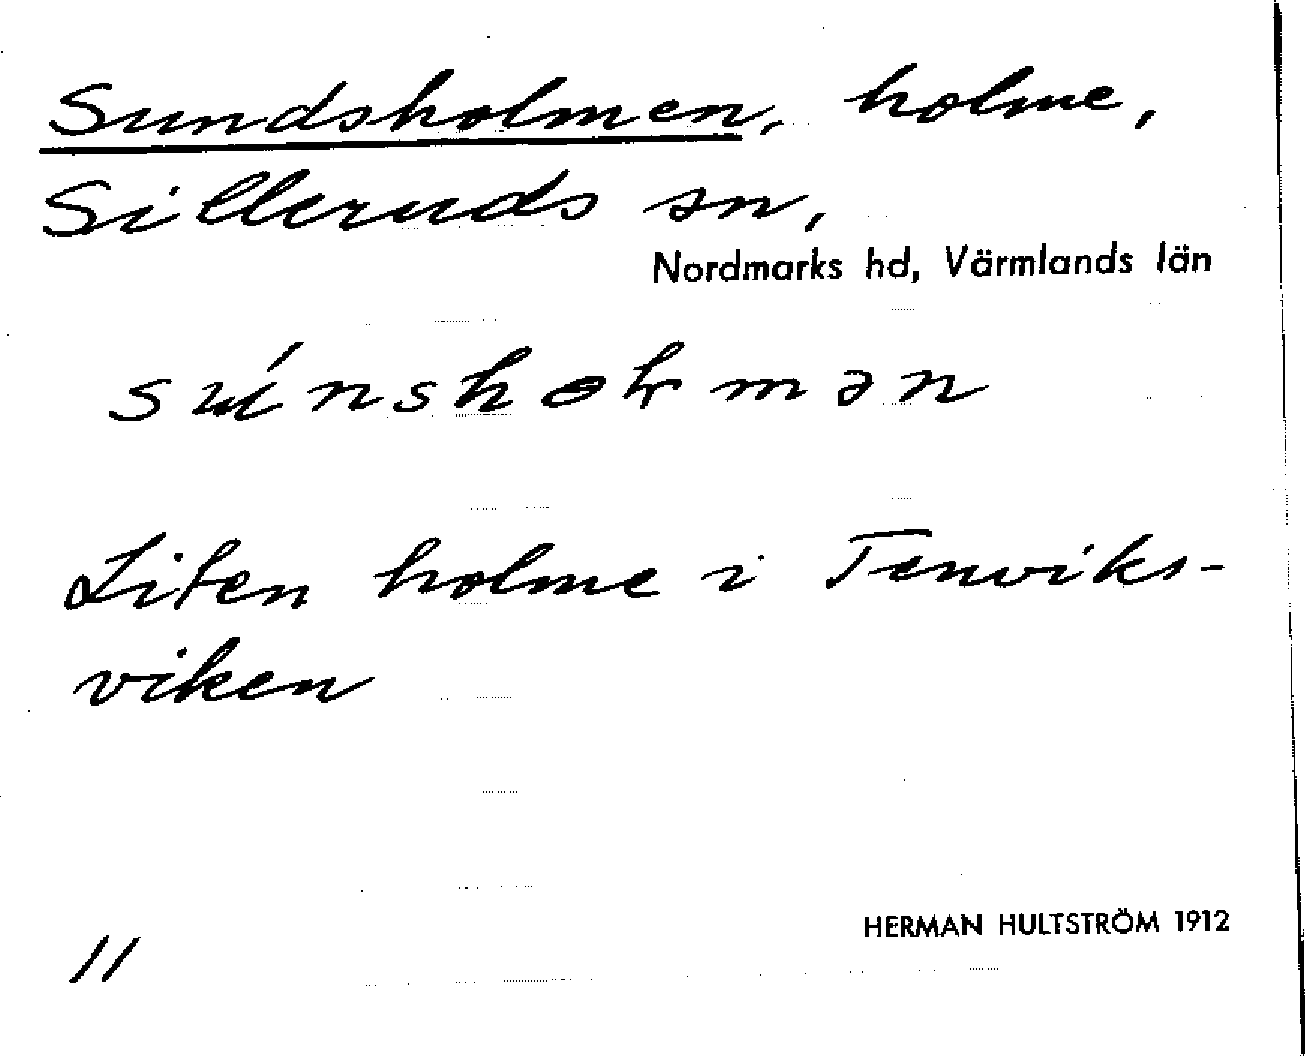 Sundsholmen, holme,
Silleruds sn,
Nordmarks hd, Värmlands län
Liten holme i Tenviks-
viken
HERMAN HULTSTRÖM 1912
11